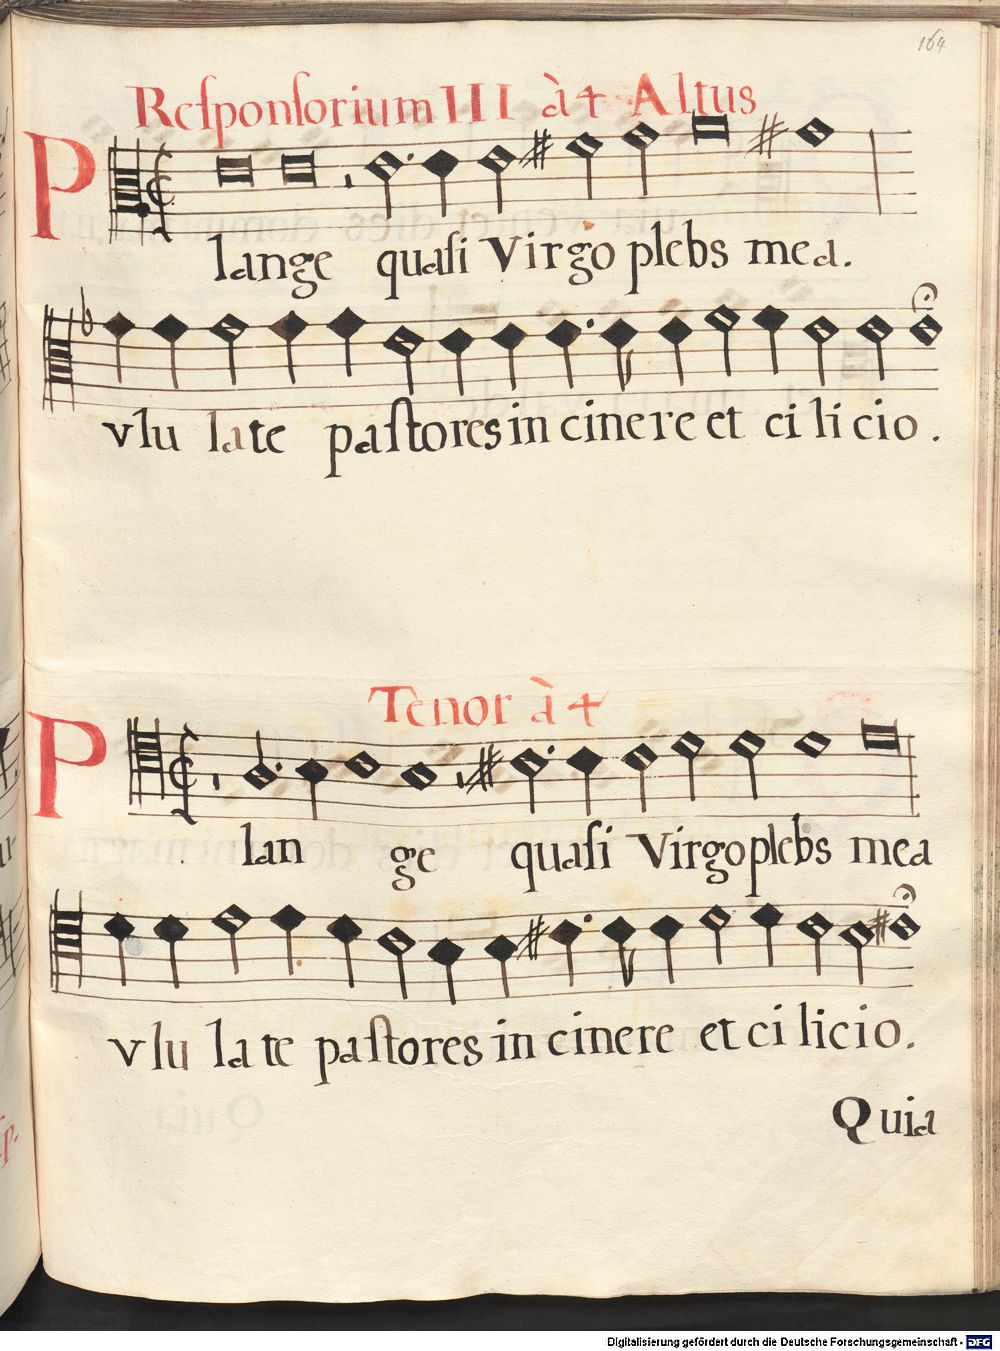 164
Reſponſorium III à 4 Altus
Plange quaſi Virgo plebs mea.
vlu late paſtores in cinere et ci li cio.
Tenor à 4
Plan ge quaſi Virgo plebs mea
vlu la te paſtores in cinere et ci licio.
Quia
Digitalisierung gefördert durch die Deutsche Forschungsgemeinschaft - DFG